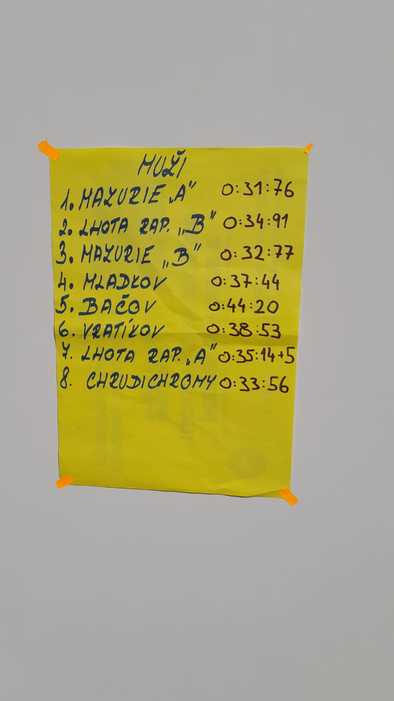 MUŽI
1. MAZURIE „A" 0:31:76
2. LHOTA RAP. „B" 0:34:91
3. MAZURIE „B" 0:32:77
4. MLADKOV 0:37:44
5. BAČOV 0:44:20
6. VRATÍKOV 0:38:53
7. LHOTA RAP. „A" 0:35:14+5
8. CHRUDICHROMY 0:33:56